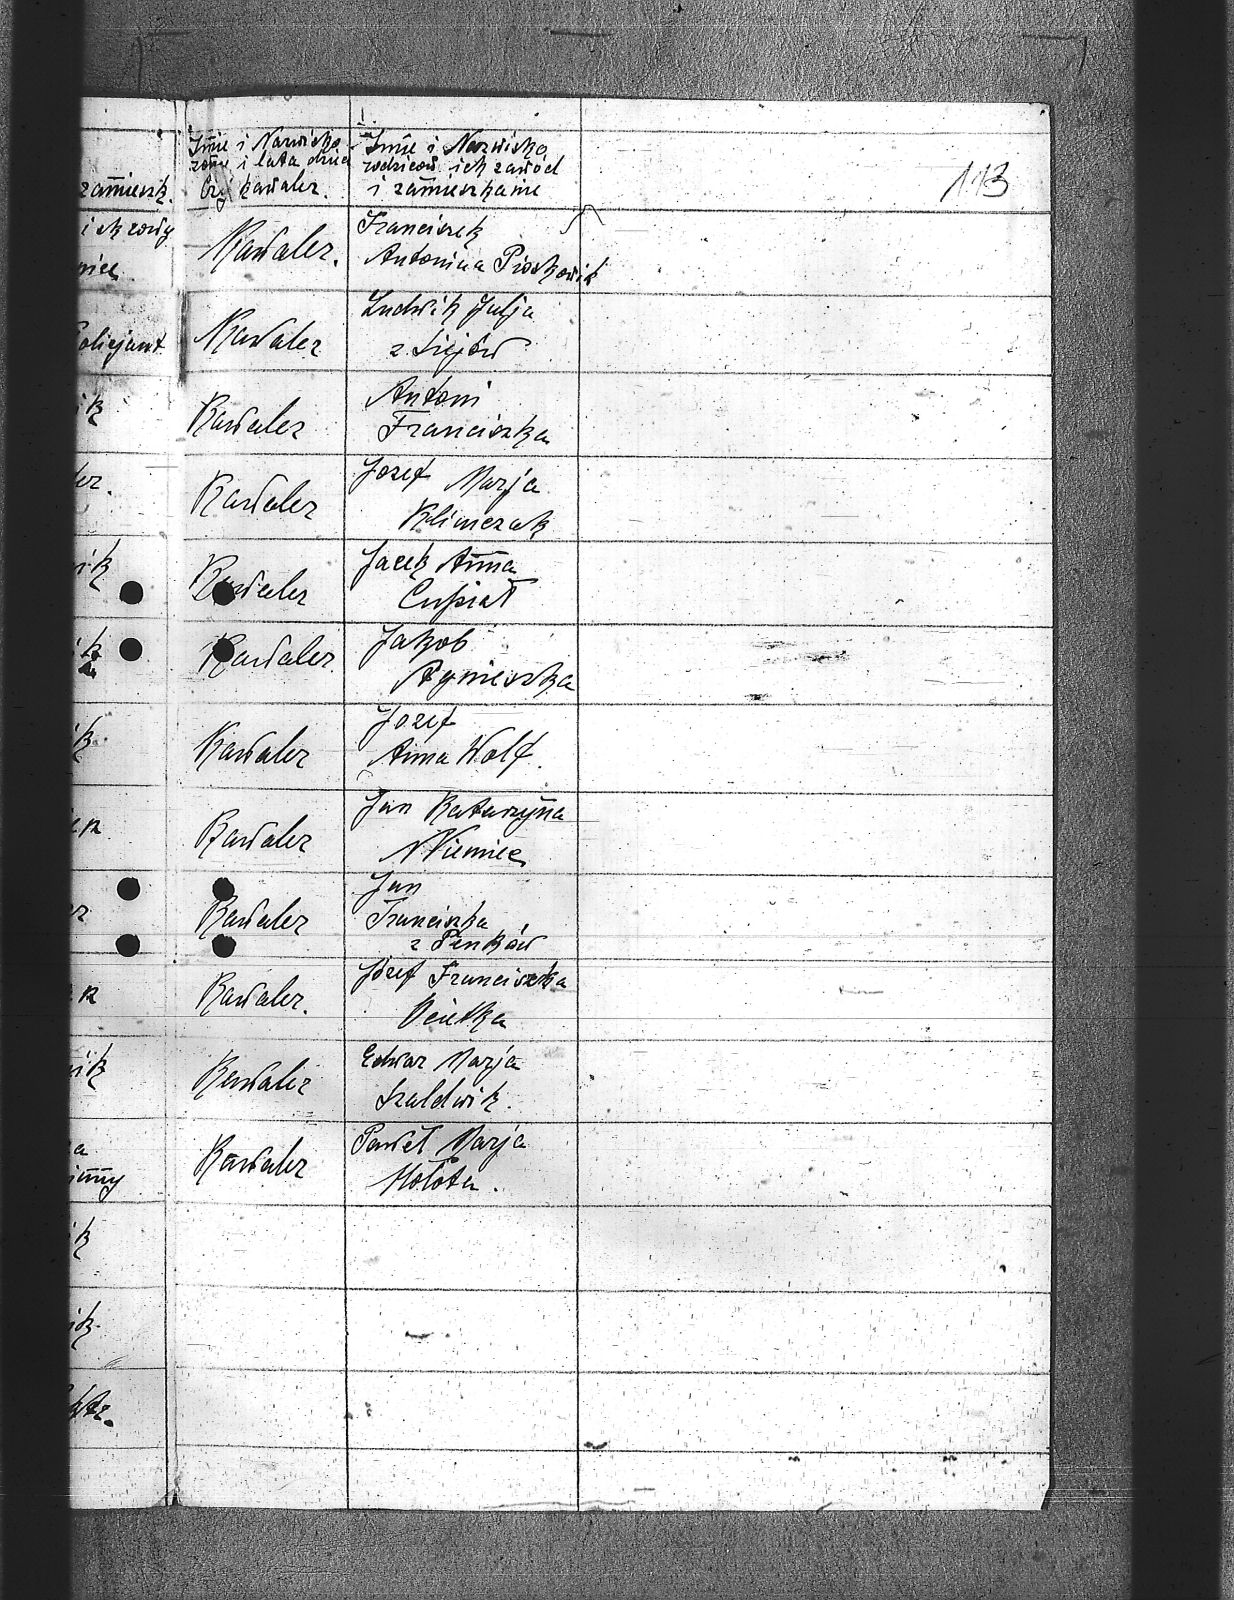 113
Imię i Nazwisko
żony i lata dzieci
czy kawaler.
Imię i Nazwisko
rodziców ich zawód
i zamieszkanie
zamieszk.
Kawaler.
Franciszek
Antonina Pioskowik
Policjant
Kawaler
Ludwik Julja
z Lisjów
Kawaler
Antoni
Franciszka
Kawaler
Jozef Marja
Klimczak
Kawaler
Jacek Anna
Cupiał
Kawaler
Jakob
Agnieszka
Kawaler
Jozef
Anna Wolf.
Kawaler
Jan Katarzyna
Niemiec
Kawaler
Jan
Franciszka
z Pienków
Kawaler.
Józef Franciszka
Kawaler
Edwar Marja
Szaldwik.
Kawaler
Paweł Marja
Hołota.